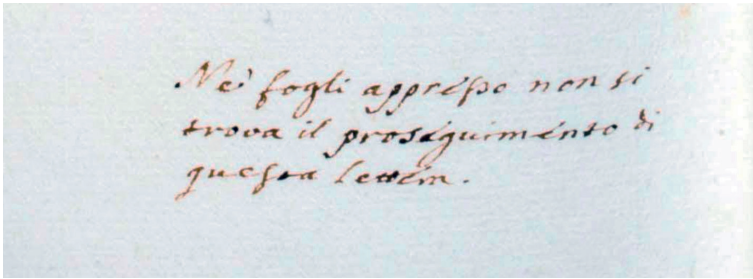 Ne' fogli appresso non si
trova il proseguimento di
questa lettera.